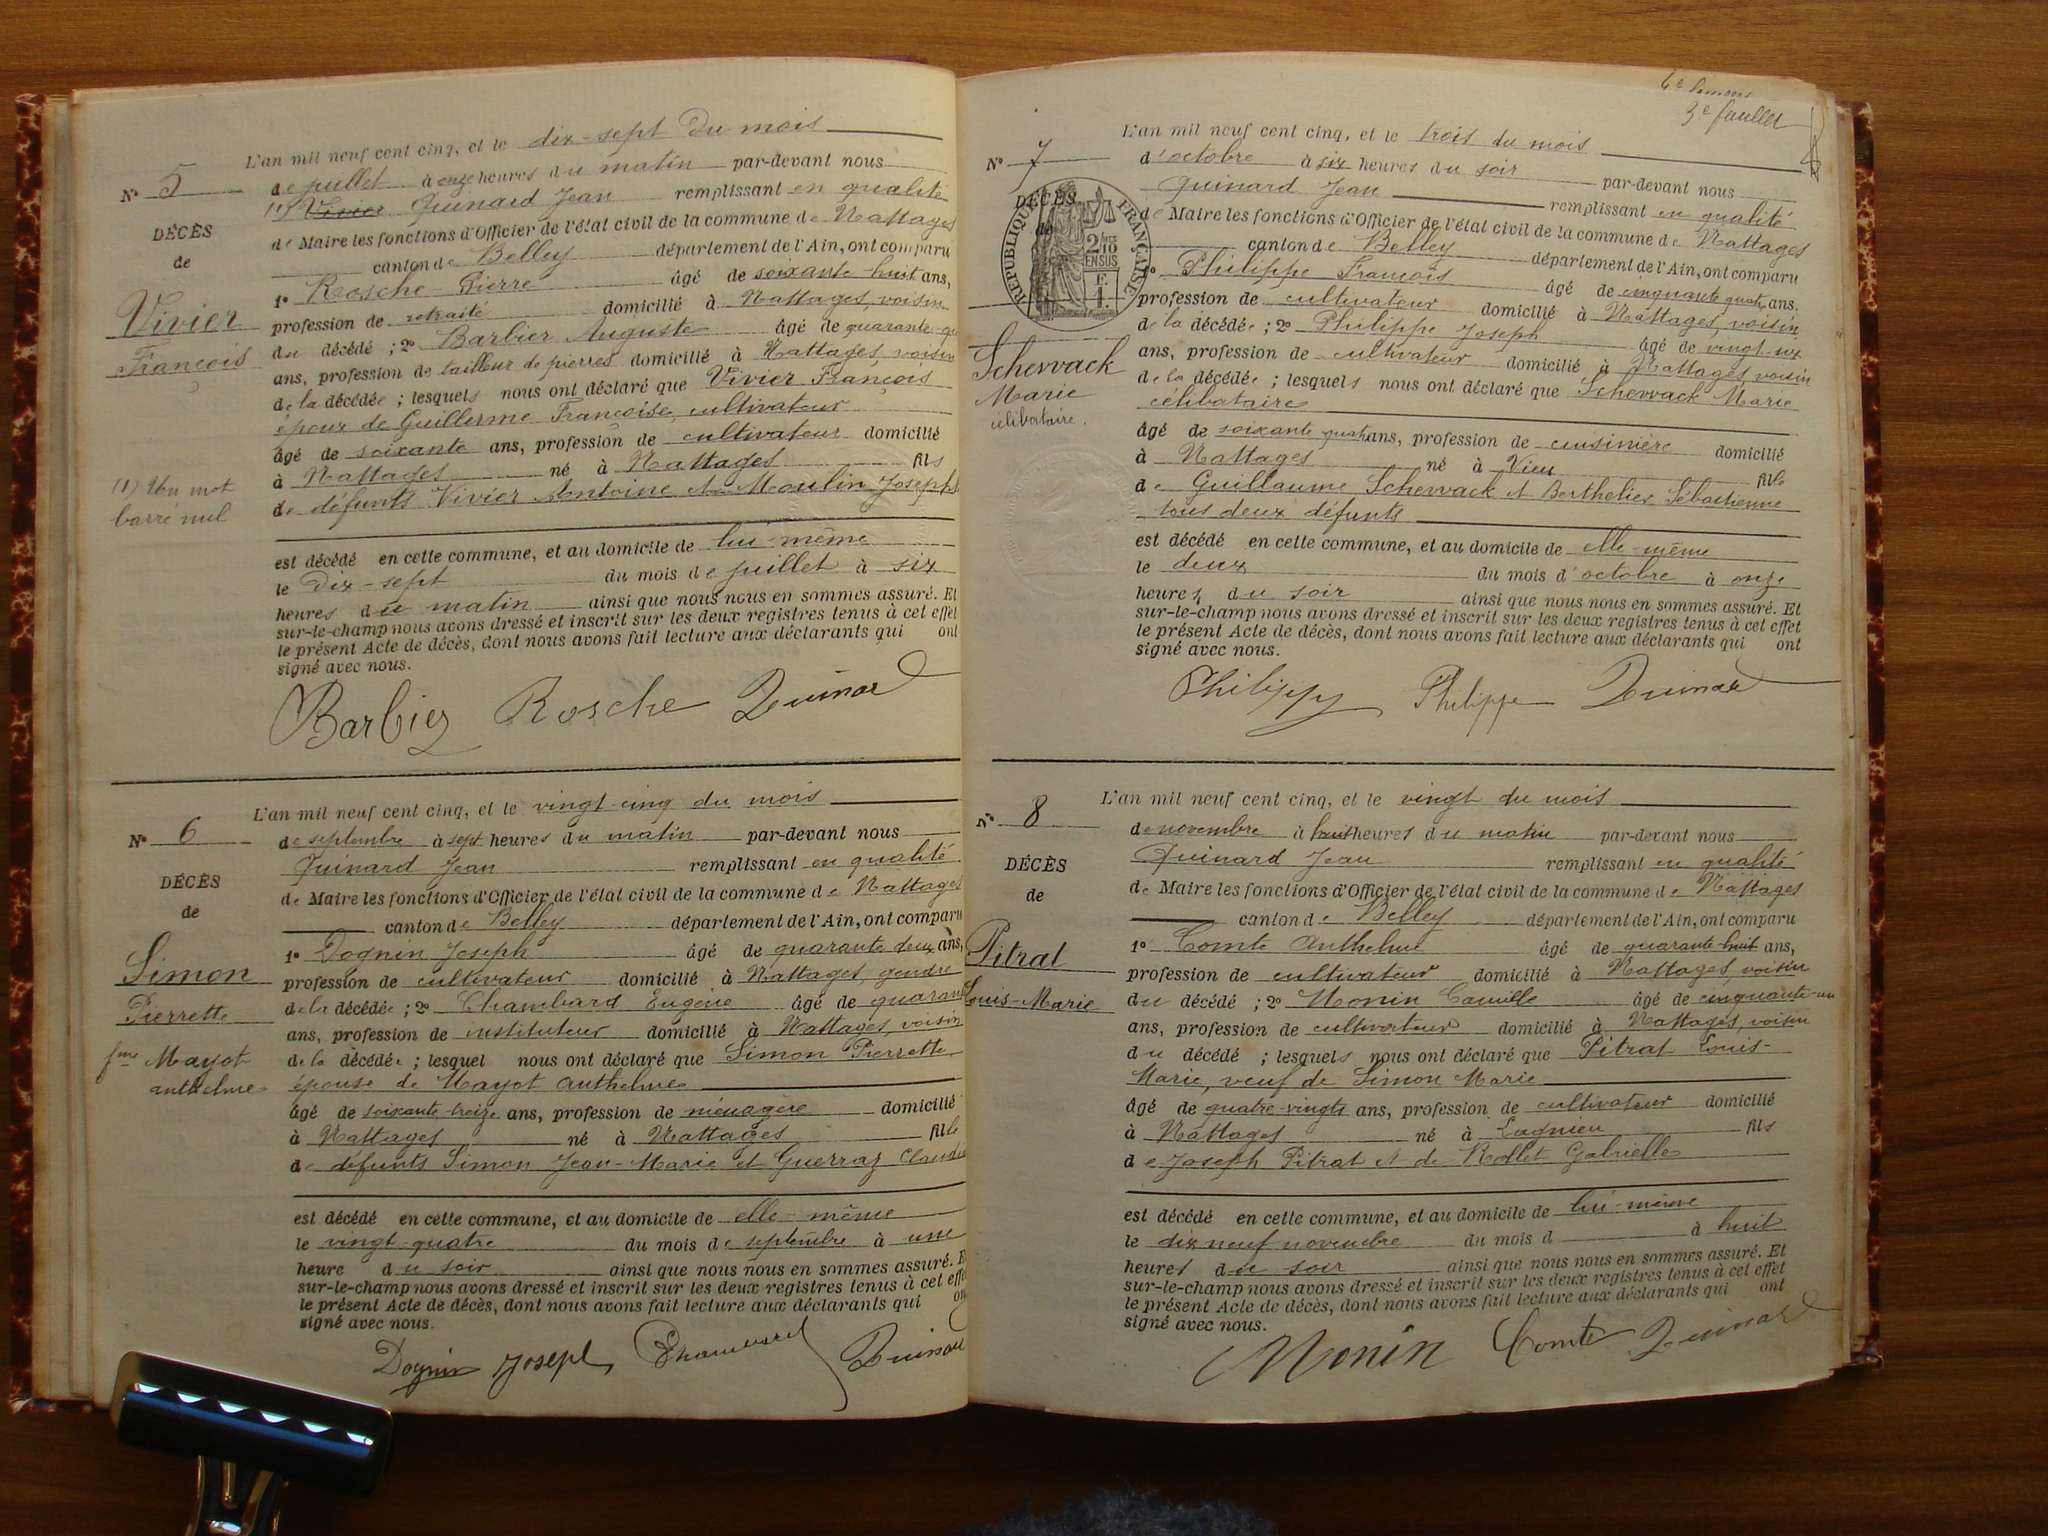 L'an mil neuf cent cinq, et le dix-sept du mois
N° 5
de juillet à onze heures du matin par-devant nous
(1) Vivier Quinard Jean remplissant en qualité
DÉCÈS
de Maire les fonctions d'Officier de l'état civil de la commune de Nattages
de
canton de Belley département de l'Ain, ont comparu
1° Rosche Pierre âgé de soixante-huit ans,
Vivier
profession de retraité domicilié à Nattages, voisin
François
du décédé ; 2° Barbier Auguste âgé de quarante
ans, profession de tailleur de pierres domicilié à Nattages, voisin
de la décédée ; lesquels nous ont déclaré que Vivier François
époux de Guillerme Françoise, cultivateur
âgé de soixante ans, profession de cultivateur domicilié
à Nattages né à Nattages fils
(1) Un mot
de défunts Vivier Antoine et Moulin Josephte
barré nul
est décédé en cette commune, et au domicile de lui-même
le Dix-sept du mois de juillet à six
heures du matin ainsi que nous nous en sommes assuré. Et
sur-le-champ nous avons dressé et inscrit sur les deux registres tenus à cet effet
le présent Acte de décès, dont nous avons fait lecture aux déclarants qui ont
signé avec nous.
Barbier Rosche Quinard
L'an mil neuf cent cinq, et le vingt-cinq du mois
N° 6
de septembre à sept heures du matin par-devant nous
Quinard Jean remplissant en qualité
DÉCÈS
de Maire les fonctions d'Officier de l'état civil de la commune de Nattages
de
canton de Belley département de l'Ain, ont comparu
1° Dognin Joseph âgé de quarante deux ans,
Simon
profession de cultivateur domicilié à Nattages, gendre
Pierrette
de la décédée ; 2° Chambard Eugène âgé de quarante
ans, profession de instituteur domicilié à Nattages, voisin
fme Mayot
de la décédée ; lesquel nous ont déclaré que Simon Pierrette
anthelme
épouse de Mayot anthelme
âgé de soixante-treize ans, profession de ménagère domicilié
à Nattages né à Nattages fille
de défunts Simon Jean-Marie et Guerraz Claudi
est décédé en cette commune, et au domicile de elle-même
le vingt-quatre du mois de septembre à une
heure du soir ainsi que nous nous en sommes assuré. E
sur-le-champ nous avons dressé et inscrit sur les deux registres tenus à cet effe
le présent Acte de décès, dont nous avons fait lecture aux déclarants qui on
signé avec nous.
Dognin Joseph Chambard Quinard
3e feuillet
L'an mil neuf cent cinq, et le trois du mois
N° 7
d'octobre à six heures du soir par-devant nous
Quinard Jean remplissant en qualité
DÉCÈS
de Maire les fonctions d'Officier de l'état civil de la commune de Nattages
de
RÉPUBLIQUE FRANÇAISE
canton de Belley département de l'Ain, ont comparu
1° Philippe François âgé de cinquante quatre ans,
profession de cultivateur domicilié à Nattages, voisin
de la décédée ; 2° Philippe Joseph âgé de vingt-six
Schervack
ans, profession de cultivateur domicilié à Nattages voisin
Marie
de la décédée ; lesquels nous ont déclaré que Schervack Marie
célibataire.
célibataire
âgé de soixante quatre ans, profession de cuisinière domicilié
à Nattages né à Vieu fille
de Guillaume Schervack et Berthelier Sébastienne
tous deux défunts
est décédé en cette commune, et au domicile de elle-même
le deux du mois d'octobre à onze
heures du soir ainsi que nous nous en sommes assuré. Et
sur-le-champ nous avons dressé et inscrit sur les deux registres tenus à cet effet
le présent Acte de décès, dont nous avons fait lecture aux déclarants qui ont
signé avec nous.
Philippe Philippe Quinard
L'an mil neuf cent cinq, et le vingt du mois
N° 8
de novembre à huit heures du matin par-devant nous
Quinard Jean remplissant en qualité
DÉCÈS
de Maire les fonctions d'Officier de l'état civil de la commune de Nattages
de
canton de Belley département de l'Ain, ont comparu
1° Comte Anthelme âgé de quarante-huit ans,
Pitrat
profession de cultivateur domicilié à Nattages, voisin
Louis-Marie
du décédé ; 2° Monin Camille âgé de cinquante-un
ans, profession de cultivateur domicilié à Nattages, voisin
du décédé ; lesquels nous ont déclaré que Pitrat Louis-
Marie, veuf de Simon Marie
âgé de quatre-vingts ans, profession de cultivateur domicilié
à Nattages né à Lagnieu fils
de Joseph Pitrat et de Rollet Gabrielle
est décédé en cette commune, et au domicile de lui-même
le dix neuf novembre du mois d à huit
heures du soir ainsi que nous nous en sommes assuré. Et
sur-le-champ nous avons dressé et inscrit sur les deux registres tenus à cet effet
le présent Acte de décès, dont nous avons fait lecture aux déclarants qui ont
signé avec nous.
Monin Comte Quinard